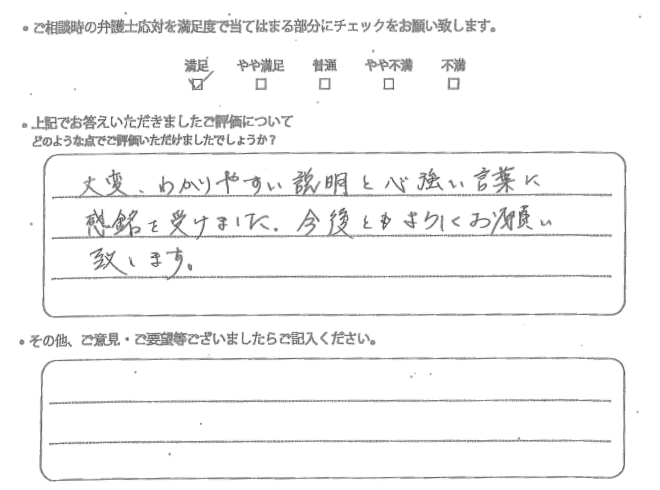 ・ご相談時の弁護士応対を満足度で当てはまる部分にチェックをお願い致します。
満足 やや満足 普通 やや不満 不満
・上記でお答えいただきましたご評価について
どのような点でご評価いただけましたでしょうか？
大変、わかりやすい説明と心強い言葉に
感銘を受けました。今後ともよろしくお願い
致します。
・その他、ご意見・ご要望等ございましたらご記入ください。